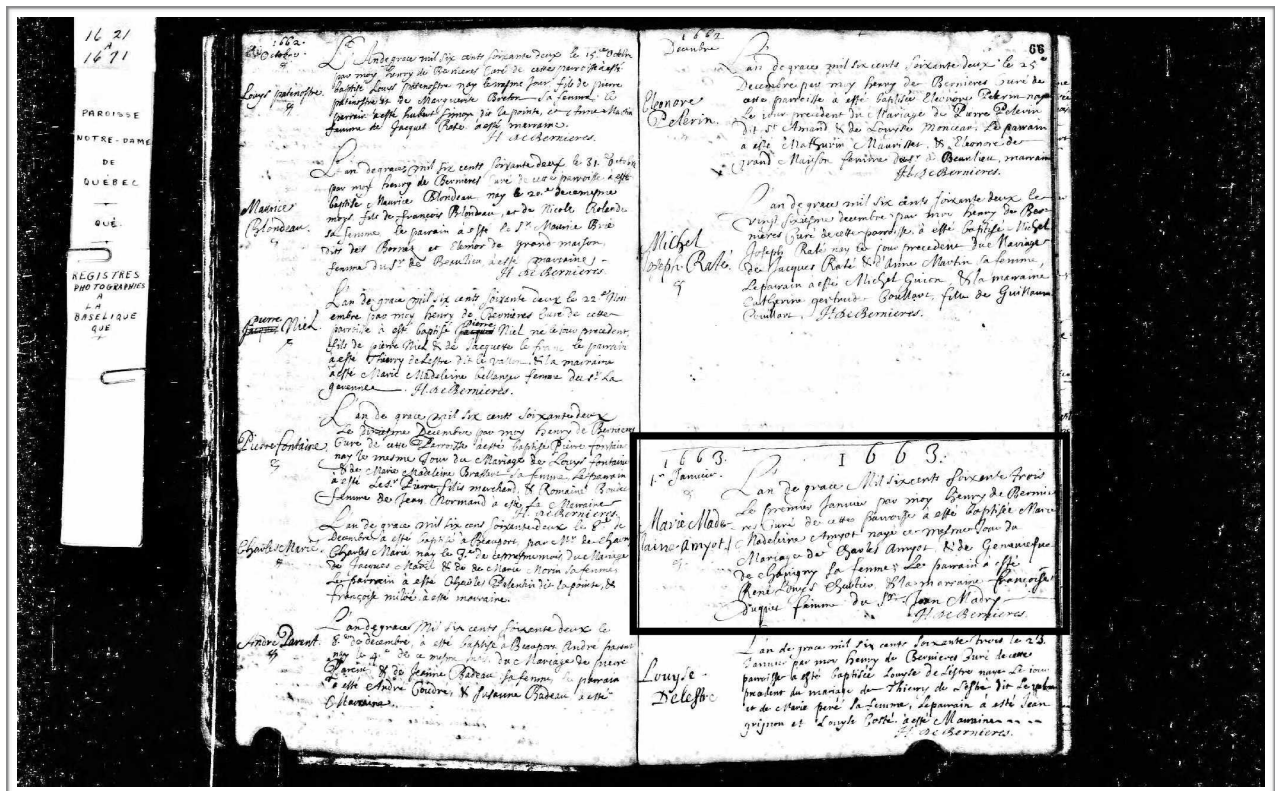 16 21
A
16 71
PAROISSE
NOTRE-DAME
DE
QUÉBEC
QUÉ.
REGISTRES
PHOTOGRAPHIES
A
LA
BASELIQUE
QUE
1662.
Octobre.
Louys patenostre.
L'An de grace mil six cents soixante deux le 15.me Octobre
par moy henry de Bernieres Curé de cette paroisse a esté
baptisé Louys patenostre nay le mesme jour, fils de pierre
patenostre et de Marguerite Breton sa femme, le
parrain a esté hubert Simon dit la pointe, et Anne Martin
femme de Jacques Raté a esté marraine.
H. de Bernieres.
Maurice
Blondeau.
L'an de grace mil six cents soixante deux le 31. Octobre
par moy henry de Bernieres Curé de cette paroisse a esté
baptisé Maurice Blondeau nay le
moys fils de françois Blondeau, et de Nicole Rolende
sa femme, le parrain a esté le Sr. Maurice
et Elenor de grand maison,
femme du Sr. de Beaulieu a esté marraine.
H. de Bernieres.
pierre
Niel.
L'an de grace mil six cents soixante deux le 22.e Nov
embre par moy henry de Bernieres Curé de cette
paroisse a esté baptisé pierre Niel né le jour precedent,
fils de pierre Niel & de Jacquette le franc le parrain
a esté Thierry de Lestre dit le valon, & la marraine
a esté Marie Madeleine bellanger femme du Sr. La
H. de Bernieres.
Pierre fontaine
L'an de grace mil six cents soixante deux
Le Decembre par moy henry de Bernieres
Curé de cette Parroisse a esté baptisé Pierre fontaine
nay le mesme Jour du Mariage de Louys fontaine
& de Marie Madeleine sa femme Le parrain
a esté Le Sr. Pierre filis merchand, & Romaine
femme de Jean Normand a esté La Marraine.
H. de Bernieres.
Charles Marié.
L'an de grace mil six cens soixante deux le 8.e de
Decembre a esté baptisé a Beauport par Mr. de
Charles Marié nay le de ce mesme mois, du Mariage
de Jacques Marié & de Marie Morin sa femme
Le parrain a esté Charles dit la pointe, &
françoise a esté marraine.
André Parent.
L'an de grace Mil six cents soixante deux le
8.e de decembre, a esté baptisé a Beauport André parent
nay le 4.e de ce mesme du Mariage de pierre
Parent & de Jeanne Badeau sa femme, le parrain
a esté André & Susanne Badeau a esté
Marraine.
1662
Decembre
66
Eleonore
Pelerin.
L'an de grace mil six cents soixante deux le 25.e
Decembre par moy henry de Bernieres, curé de
cette parroisse a esté baptisée Eleonore Pelerin
Le jour precedent du Mariage de Pierre Pelerin
dit St. Amand & de Louyse Le parain
a esté Mathurin & Eleonore de
grand Maison femme du Sr. de Beaulieu, marraine
H. de Bernieres.
Michel
Joseph-Raté
L'an de grace mil six cents soixante deux le
vingt sixiesme decembre par moy henry de Ber-
nieres Curé de cette parroisse, a esté baptisé Michel
Joseph Raté nay le jour precedent du Mariage
de Jacques Raté & d'Anne Martin sa femme,
Le parain a esté Michel Guion, & la maraine
Catherine gertrude Couillart, fille de Guillaume
Couillart. H. de Bernieres.
1663.
1.er Janvier.
1663.
Marie Made-
laine-Amyot
L'an de grace Mil six cents soixante trois
Le premier Janvier par moy henry de Bernie
res Curé de cette parroisse a esté baptisée Marie
Madeleine Amyot nayë ce mesme Jour du
Mariage de Charles Amyot & de Genevuefue
de chavigny sa femme; Le parrain a esté
René Louys Chartier & la marraine françoise
Duquet femme du Sr. Jean Madry
H. de Bernieres.
Louyse
Delestre
L'an de grace mil six cents soixante trois le 23.
Janvier par moy henry de Bernieres Curé de cette
parroisse a esté baptisée Louyse de Lestre nayë Le jour
precedent du mariage de Thierry de Lestre dit Le valon
et de Marie peré sa femme, Le parrain a esté Jean
grignon et Louyse a esté Marraine
H. de Bernieres.